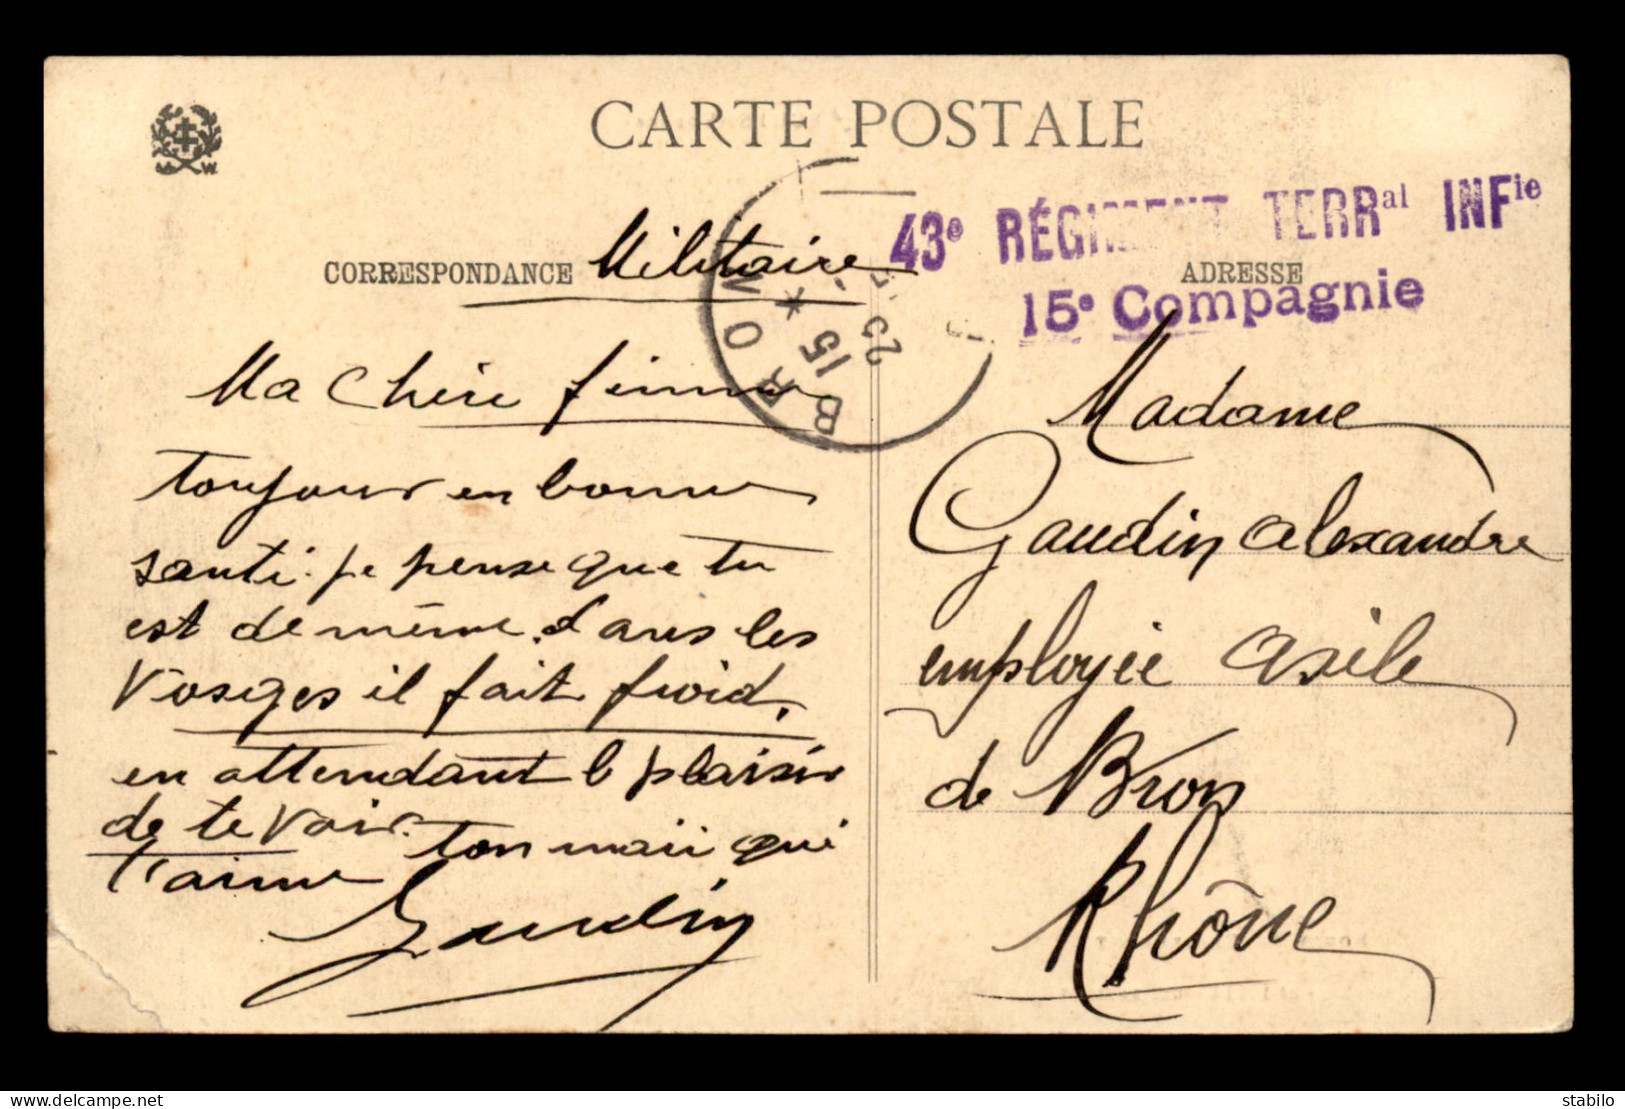 CARTE POSTALE
43e RÉGIMENT TERRal INFie
15e Compagnie
CORRESPONDANCE
Militaire
ADRESSE
BRON
15
25
Ma Chére femme
toujour en bonne
santé. je pense que tu
est de même. dans les
Vosges il fait froid.
en attendant l plaisir
de te voir. ton mari qui
t'aime
Gaudin
Madame
Gaudin Alexandre
employée Asile
de Bron
Rhône
W.
delcampe.net
stabilo